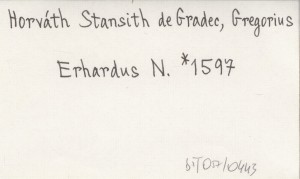 Horváth Stansith de Gradec, Gregorius
Erhardus N. *1597